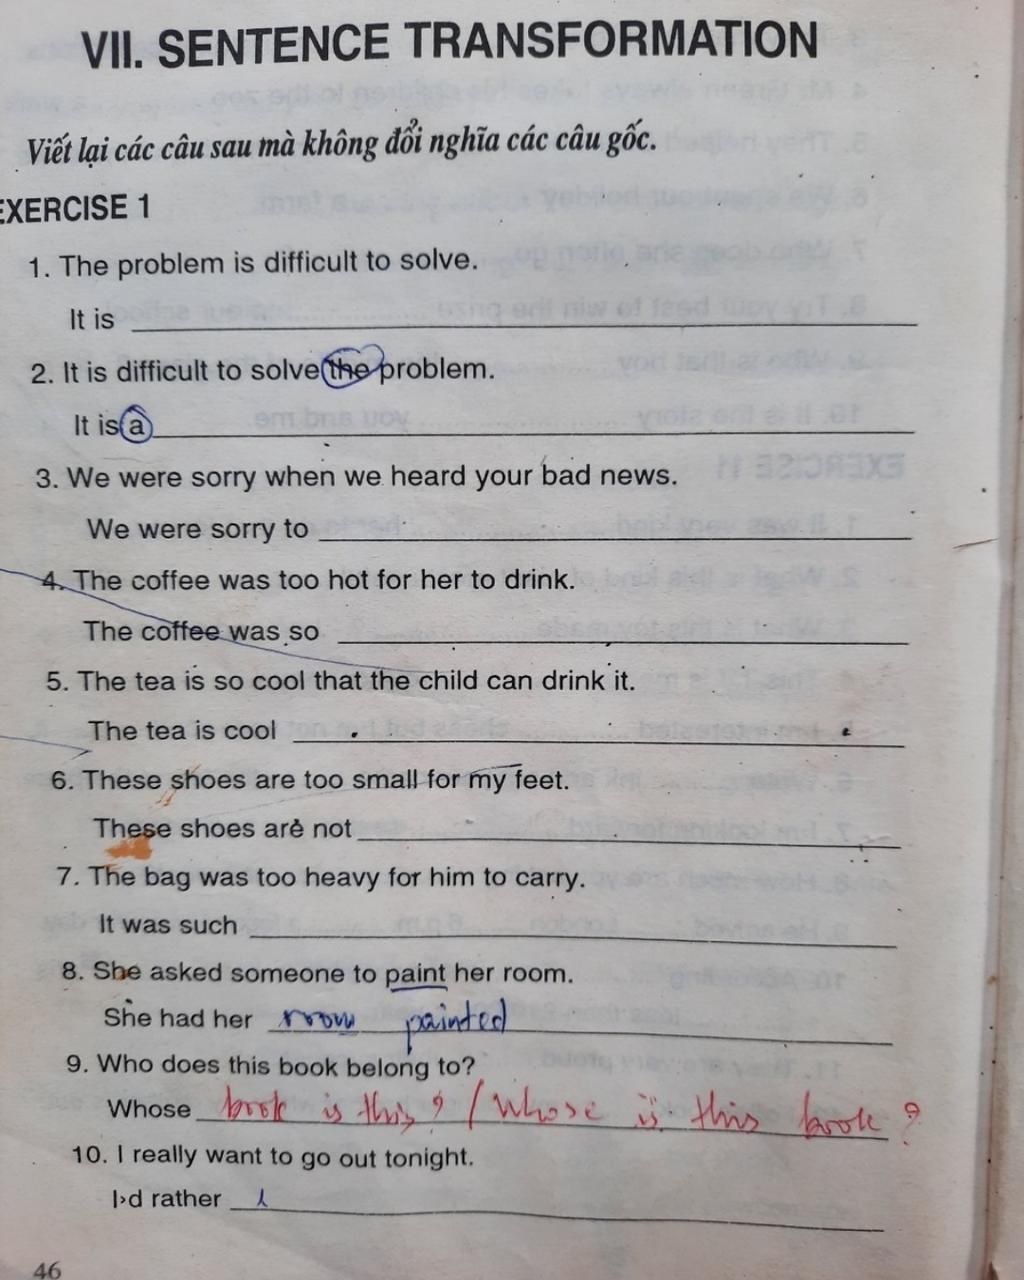 VII. SENTENCE TRANSFORMATION
Viết lại các câu sau mà không đổi nghĩa các câu gốc.
EXERCISE 1
1. The problem is difficult to solve.
It is
2. It is difficult to solve the problem.
It is a
3. We were sorry when we heard your bad news.
We were sorry to
4. The coffee was too hot for her to drink.
The coffee was so
5. The tea is so cool that the child can drink it.
The tea is cool
6. These shoes are too small for my feet.
These shoes are not
7. The bag was too heavy for him to carry.
It was such
8. She asked someone to paint her room.
She had her room painted
9. Who does this book belong to?
Whose book is this? / Whose is this book?
10. I really want to go out tonight.
I›d rather
46